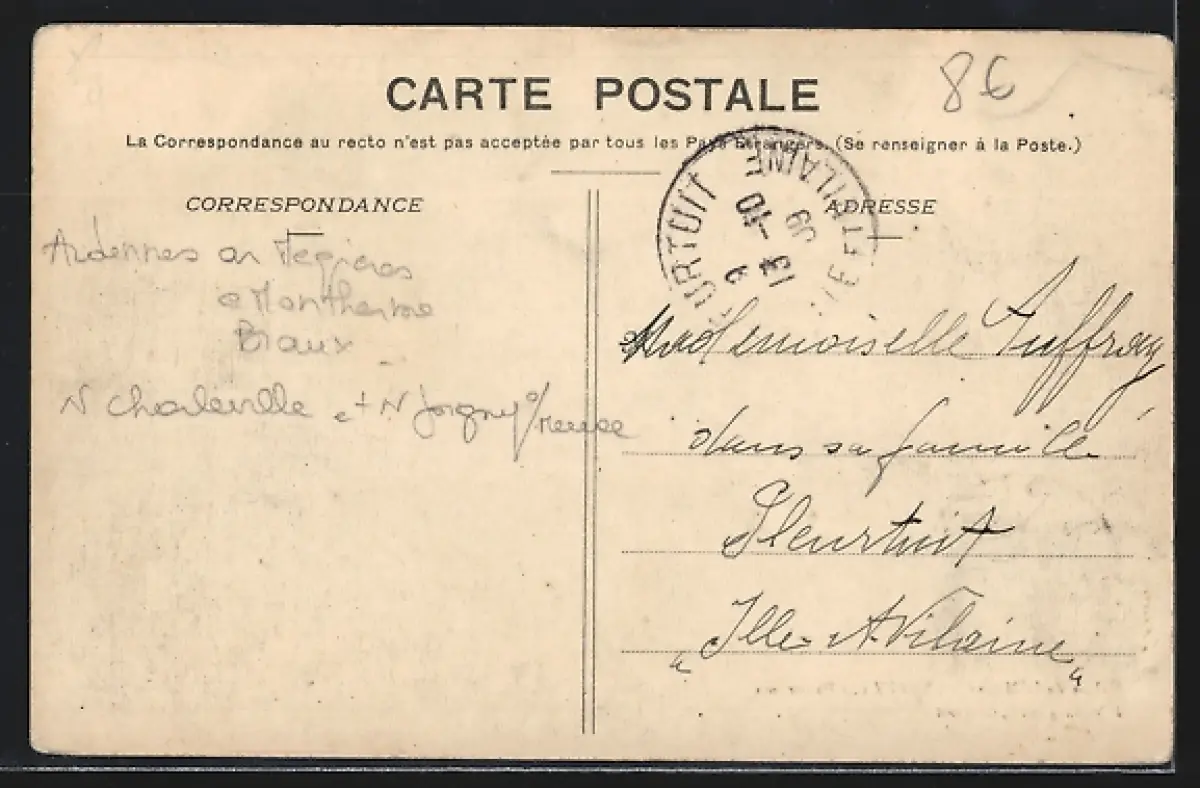 CARTE POSTALE
86
La Correspondance au recto n'est pas acceptée par tous les Pays Etrangers. (Se renseigner à la Poste.)
CORRESPONDANCE
Ardennes
Montherme
Braux
N Charleville et N
URTUIT
ILLE ET VILAINE
13
ADRESSE
Mademoiselle Auffray
dans sa famille
Pleurtuit
"Ille-et-Vilaine"